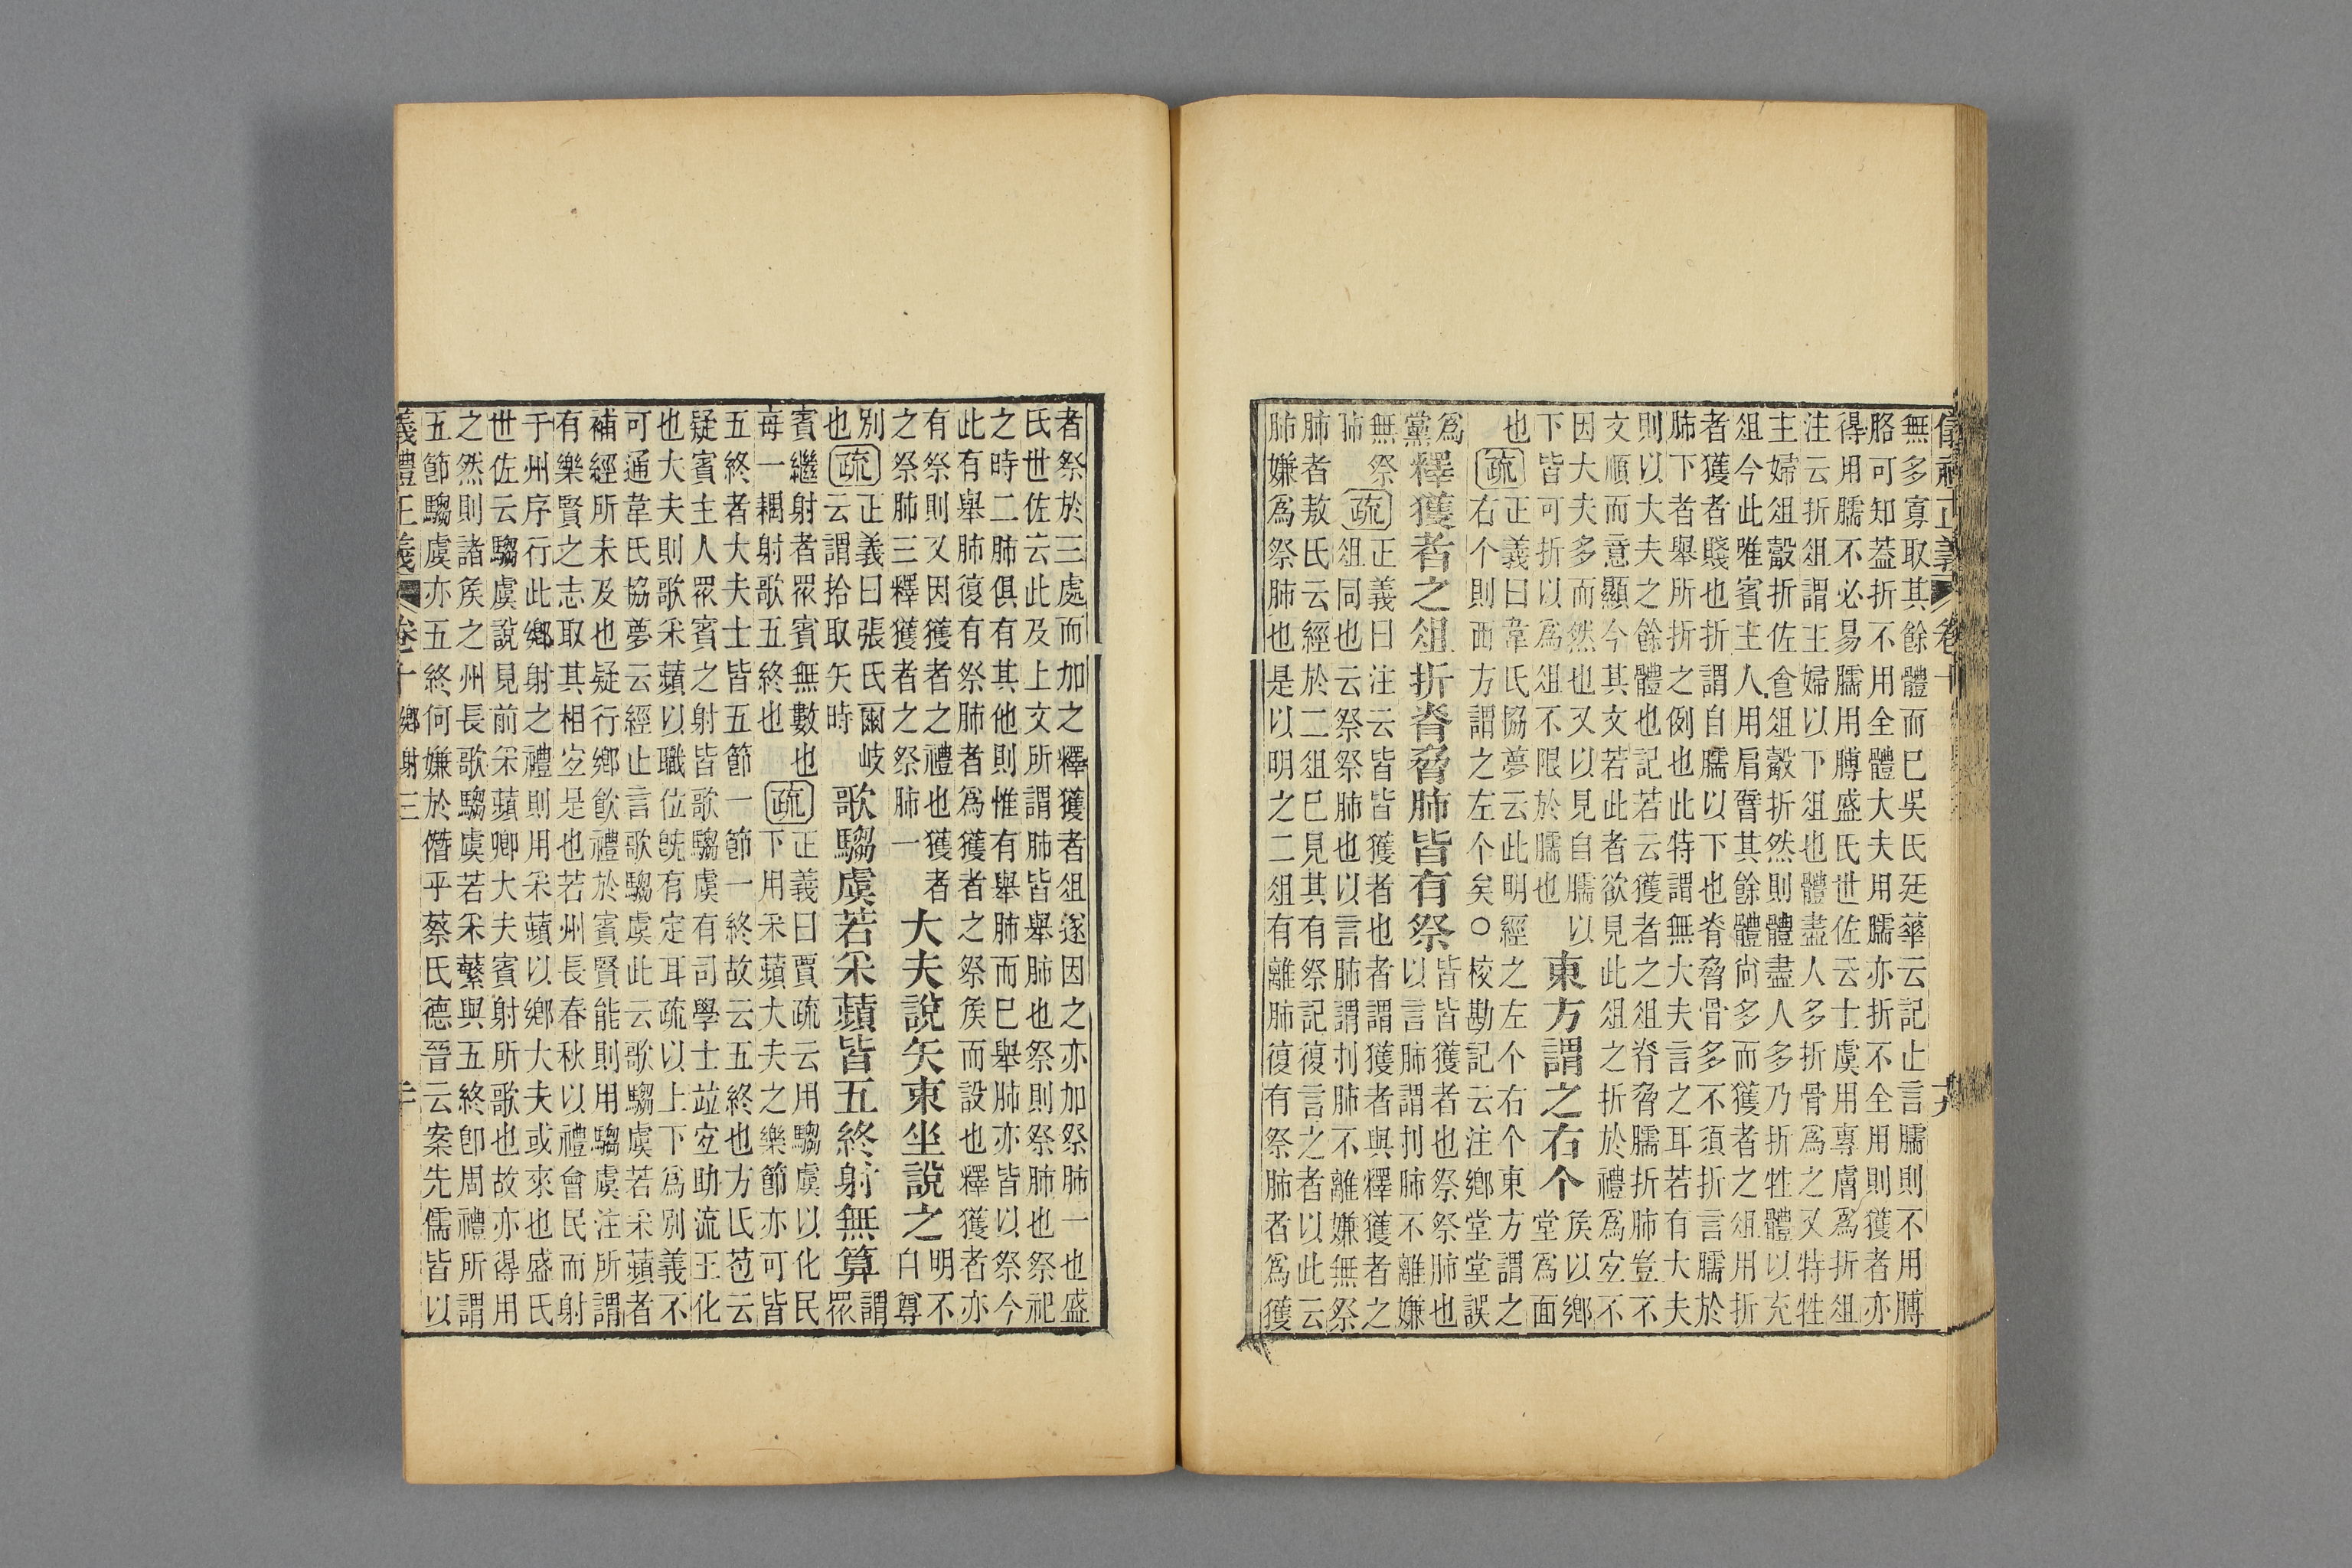 儀禮正義 卷十 十九
無多寡取其餘體而巳吳氏廷華云記止言臑則不用膊
胳可知葢折不用全體大夫用臑亦折不全用則獲者亦
得用臑不必易臑用膊盛氏世佐云士虞用專膚爲折俎
注云折俎謂主婦以下俎也體盡人多折骨爲之又特牲
主婦俎觳折佐食俎觳折然則體盡人多乃折牲體以充
俎今此唯賓主人用肩臂其餘體尙多而獲者之俎用折
者獲者賤也折謂自臑以下也脊脅骨多不須折言臑於
肺下者舉所折之例也此特謂無大夫言之耳若有大夫
則以大夫之餘體也記若云獲者之俎脊脅臑折肺豈不
文順而意顯今其文若此者欲見此俎之折於禮爲宐不
因大夫多而然也又以見自臑以
下皆可折以爲俎不限於臑也
東方謂之右个
矦以鄉
堂爲面
也
疏
正義曰韋氏協夢云此明經之左个右个東方謂之
右个則西方謂之左个矣○校勘記云注鄉堂堂誤
爲
黨
釋獲者之俎折脊脅肺皆有祭
皆皆獲者也祭祭肺也
以言肺謂刌肺不離嫌
無祭
肺
疏
正義曰注云皆皆獲者也者謂獲者與釋獲者之
俎同也云祭祭肺也以言肺謂刌肺不離嫌無祭
肺者敖氏云經於二俎巳見其有祭記復言之者以此云
肺嫌爲祭肺也是以明之二俎有離肺復有祭肺者爲獲
者祭於三處而加之釋獲者俎遂因之亦加祭肺一也盛
氏世佐云此及上文所謂肺皆舉肺也祭則祭肺也祭祀
之時二肺俱有其他則惟有舉肺而巳舉肺亦皆以祭今
此有舉肺復有祭肺者爲獲者之祭矦而設也釋獲者亦
有祭則又因獲者之禮也獲者
之祭肺三釋獲者之祭肺一
大夫說矢束坐說之
明不
自尊
別
也
疏
正義曰張氏爾岐
云謂拾取矢時
歌騶虞若采蘋皆五終射無算
謂
眾
賓繼射者眾賓無數也
每一耦射歌五終也
疏
正義曰賈疏云用騶虞以化民
下用采蘋大夫之樂節亦可皆
五終者大夫士皆五節一節一終故云五終也方氏苞云
疑賓主人眾賓之射皆歌騶虞有司學士竝宐助流王化
也大夫則歌采蘋以職位旣有定耳疏以上下爲別義不
可通韋氏協夢云經止言歌騶虞此云歌騶虞若采蘋者
補經所未及也疑行鄉飮禮於賓賢能則用騶虞注所謂
有樂賢之志取其相宐是也若州長春秋以禮會民而射
于州序行此鄉射之禮則用采蘋以鄉大夫或來也盛氏
世佐云騶虞說見前采蘋卿大夫賓射所歌也故亦得用
之然則諸矦之州長歌騶虞若采蘩與五終卽周禮所謂
五節騶虞亦五終何嫌於僭乎蔡氏德晉云案先儒皆以
儀禮正義 卷十 鄉射三 二十